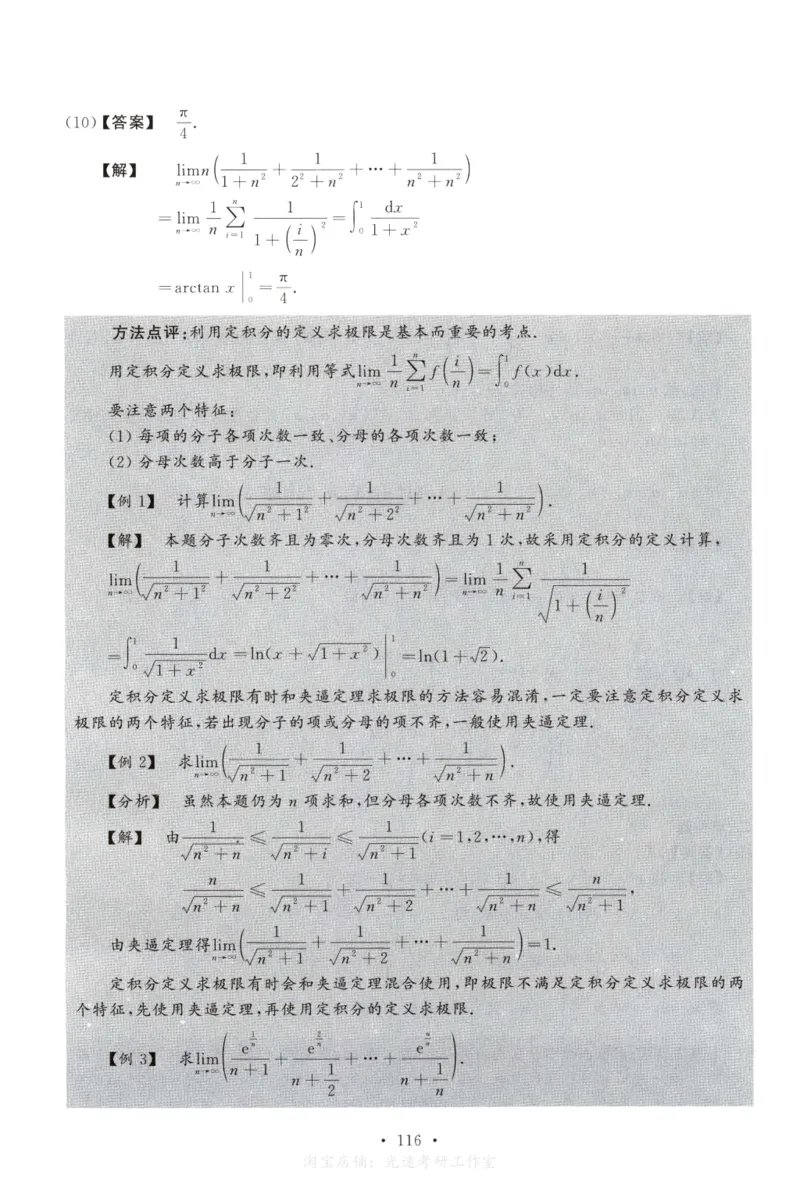 (10)【答案】 π/4.
【解】 lim_{n→∞} n(1/(1+n²) + 1/(2²+n²) + ⋯ + 1/(n²+n²))
=lim_{n→∞} 1/n ∑_{i=1}^{n} 1/(1+(i/n)²) = ∫_0^1 dx/(1+x²)
=arctan x |_0^1 = π/4.
方法点评:利用定积分的定义求极限是基本而重要的考点.
用定积分定义求极限,即利用等式lim_{n→∞} 1/n ∑_{i=1}^{n} f(i/n)=∫_0^1 f(x)dx.
要注意两个特征:
(1) 每项的分子各项次数一致、分母的各项次数一致;
(2) 分母次数高于分子一次.
【例 1】 计算lim_{n→∞}(1/√(n²+1²) + 1/√(n²+2²) + ⋯ + 1/√(n²+n²)).
【解】 本题分子次数齐且为零次,分母次数齐且为 1 次,故采用定积分的定义计算,
lim_{n→∞}(1/√(n²+1²) + 1/√(n²+2²) + ⋯ + 1/√(n²+n²)) = lim_{n→∞} 1/n ∑_{i=1}^{n} 1/√(1+(i/n)²)
=∫_0^1 1/√(1+x²) dx = ln(x + √(1+x²)) |_0^1 = ln(1+√2).
定积分定义求极限有时和夹逼定理求极限的方法容易混淆,一定要注意定积分定义求
极限的两个特征,若出现分子的项或分母的项不齐,一般使用夹逼定理.
【例 2】 求lim_{n→∞}(1/√(n²+1) + 1/√(n²+2) + ⋯ + 1/√(n²+n)).
【分析】 虽然本题仍为 n 项求和,但分母各项次数不齐,故使用夹逼定理.
【解】 由 1/√(n²+n) ≤ 1/√(n²+i) ≤ 1/√(n²+1) (i=1,2,⋯,n),得
n/√(n²+n) ≤ 1/√(n²+1) + 1/√(n²+2) + ⋯ + 1/√(n²+n) ≤ n/√(n²+1),
由夹逼定理得lim_{n→∞}(1/√(n²+1) + 1/√(n²+2) + ⋯ + 1/√(n²+n))=1.
定积分定义求极限有时会和夹逼定理混合使用,即极限不满足定积分定义求极限的两
个特征,先使用夹逼定理,再使用定积分的定义求极限.
【例 3】 求lim_{n→∞}(e^{1/n}/(n+1) + e^{2/n}/(n+1/2) + ⋯ + e^{n/n}/(n+1/n)).
• 116 •
淘宝店铺：光速考研工作室